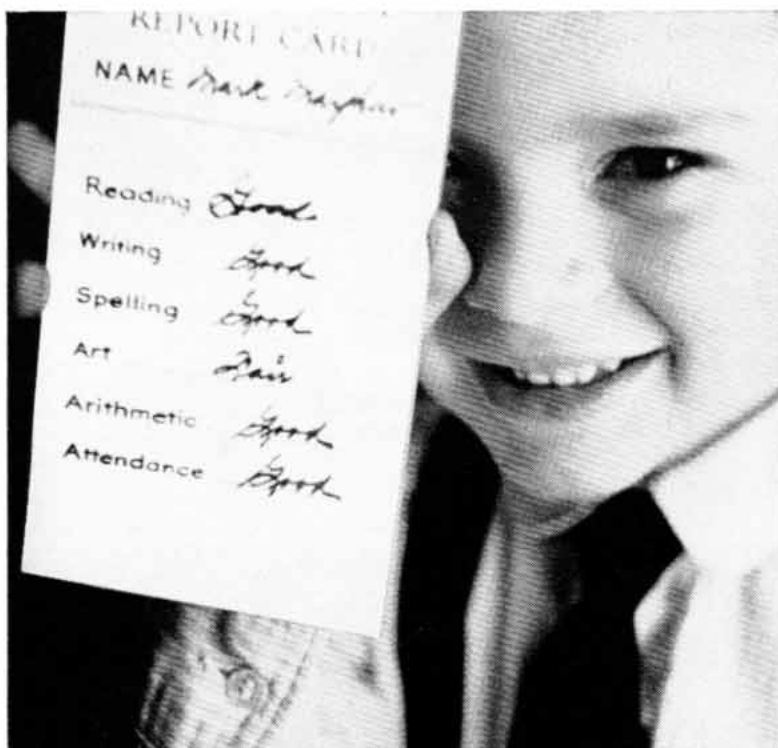 REPORT CARD
NAME Mark
Reading Good
Writing Good
Spelling Good
Art Fair
Arithmetic Good
Attendance Good